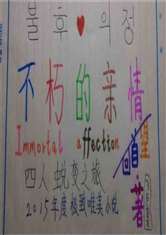 불후♥의정
不朽的亲情
Immortal affection
四人蜕变之旅
2015年度极致唯美小说
著